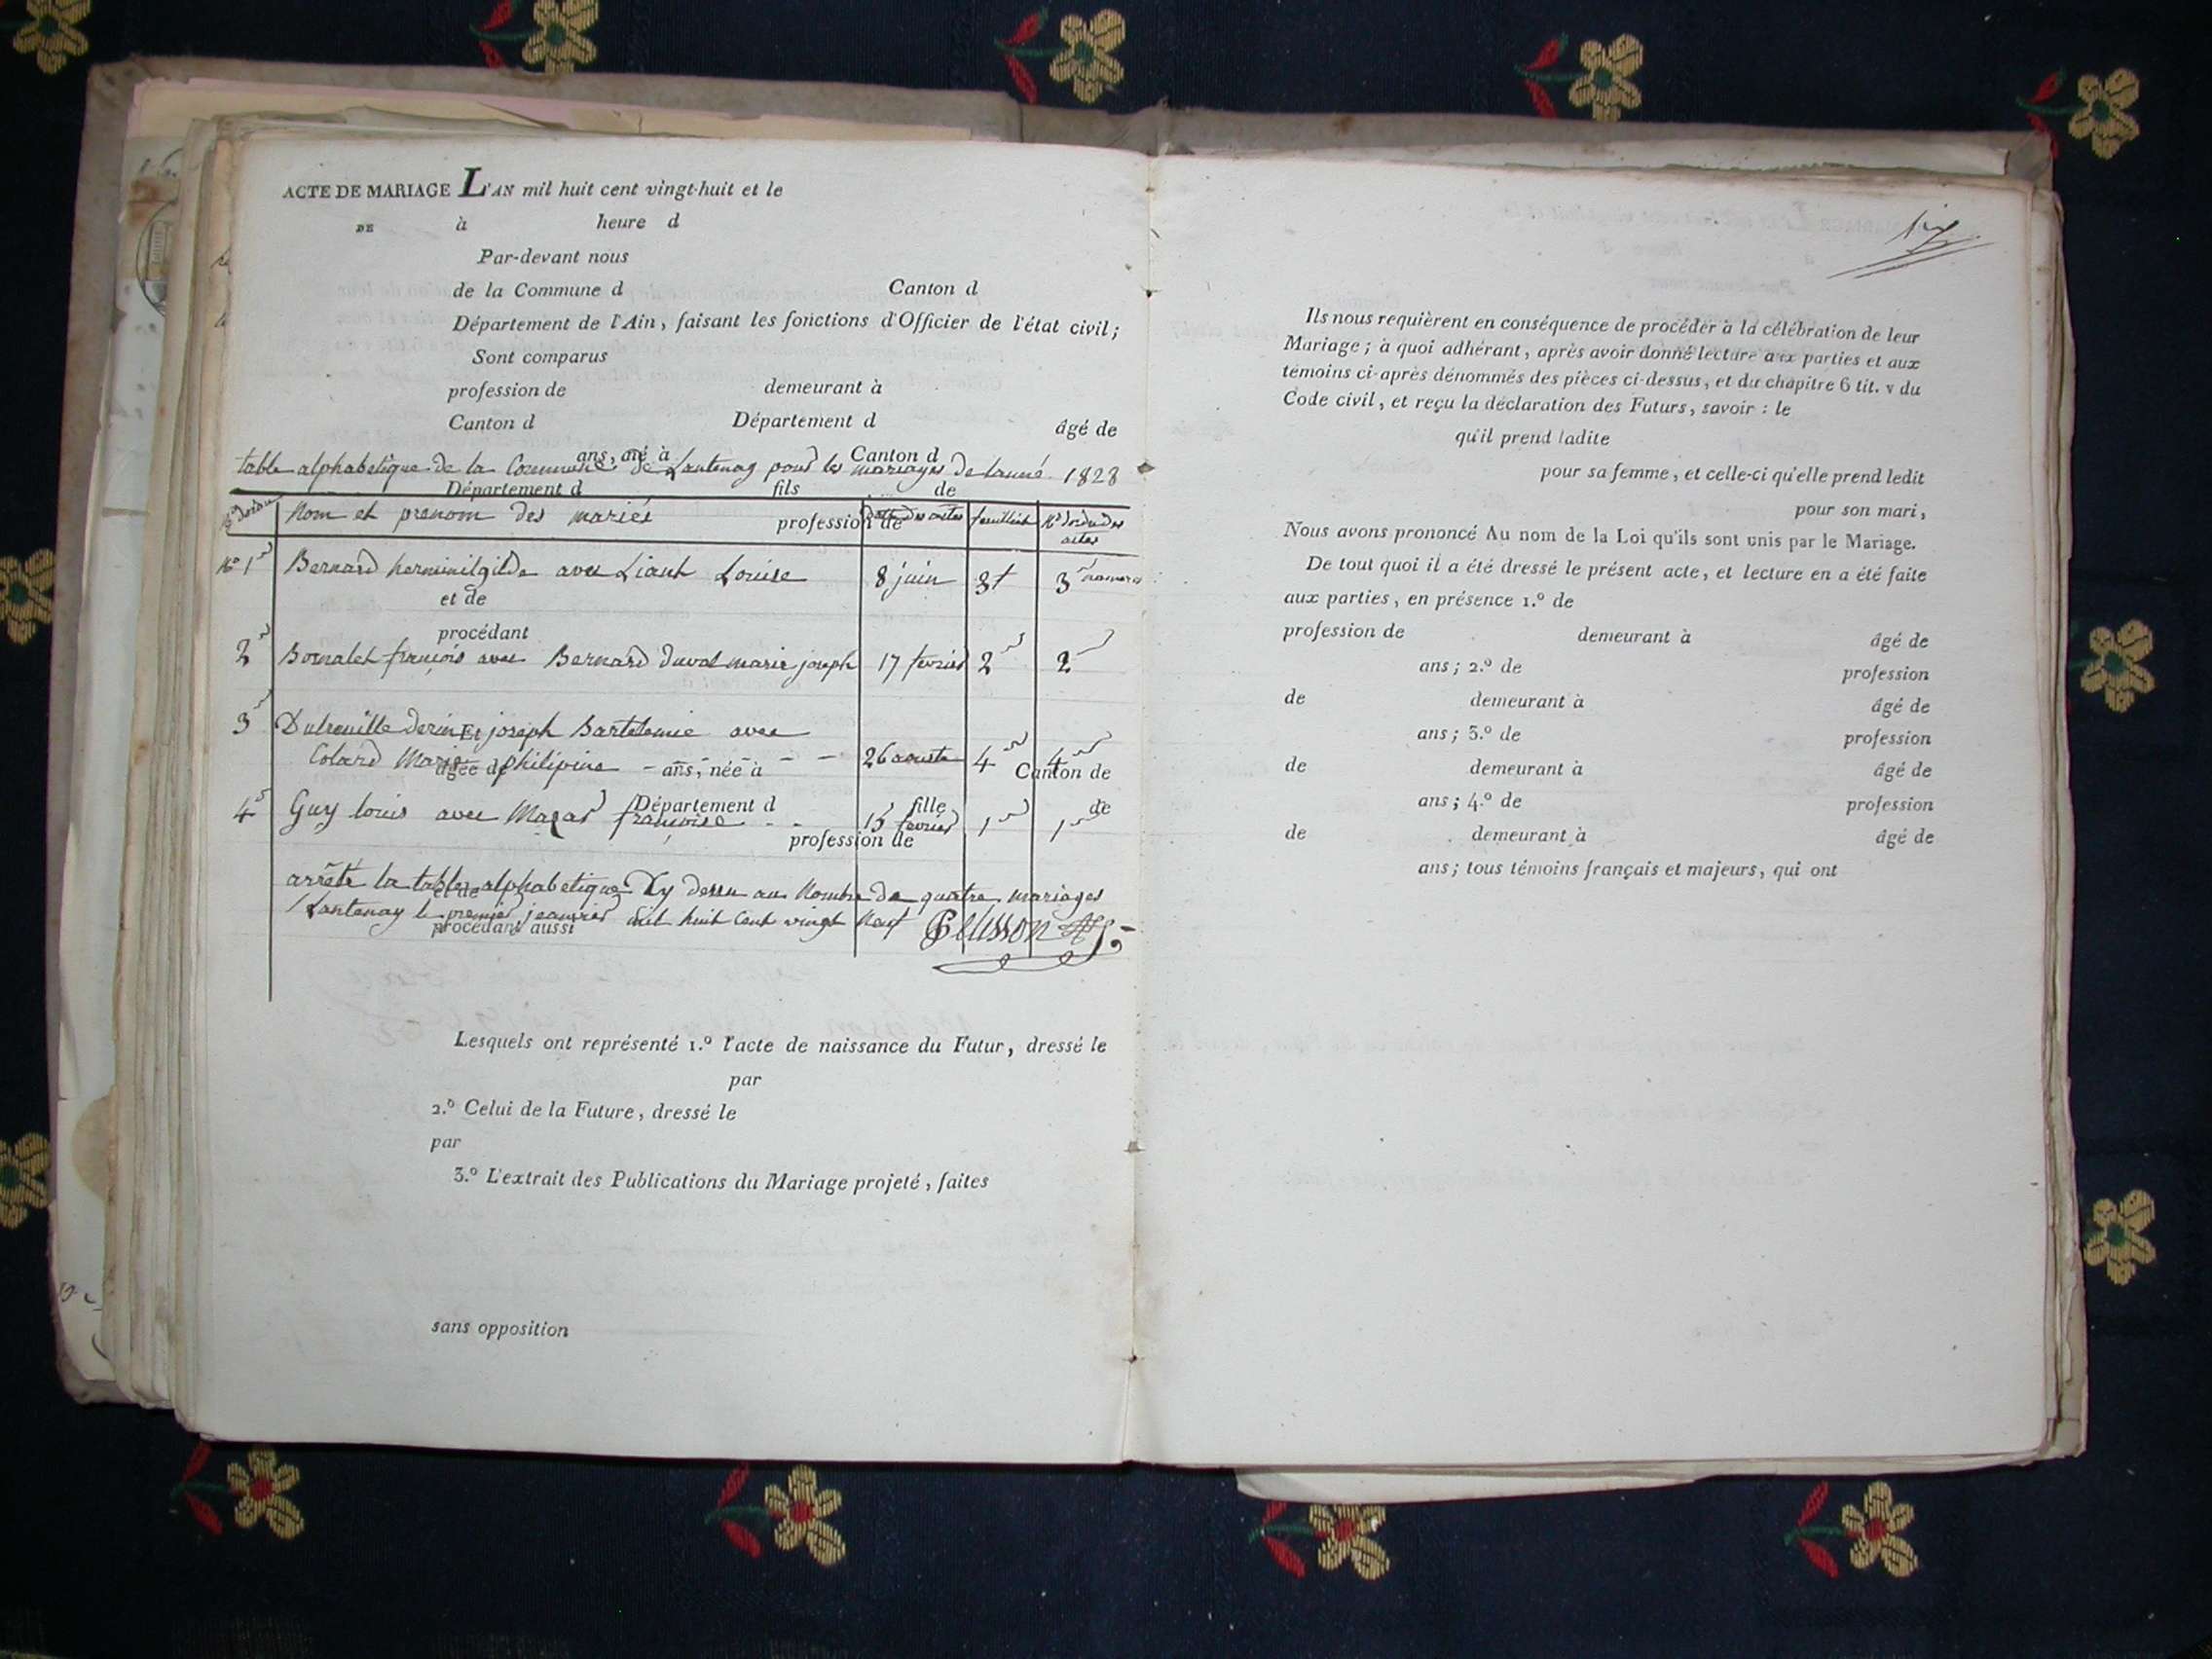 ACTE DE MARIAGE L'AN mil huit cent vingt-huit et le
DE à heure d
Par-devant nous
de la Commune d Canton d
Département de l'Ain, faisant les fonctions d'Officier de l'état civil;
Sont comparus
profession de demeurant à
Canton d Département d âgé de
ans, né à Canton d
table alphabetique de la Commune de Lantenay pour les mariages de lanné 1828
Département d fils de
Nom et prenom des mariés
profession de
datte des actes feuillet No dordre des actes
No 1 Bernard herminilgilde avec Liant Louise 8 juin 3 3
et de
procédant
2 Bomalet françois avec Bernard duval marie joseph 17 fevrier 2 2
3 joseph Bartelemie avec
Et
Colard Marie philipine 26 aouste 4 4
âgée de ans, née à Canton de
Département d fille de
4 Guy louis avec Mazas françoise 15 fevrier 1 1
profession de
arrêté la table alphabetique Dy dessu au Nombre de quatre mariages
et de
Lantenay le premier jeanvier mil huit Cent vingt Neuf Pelisson
procédant aussi
Lesquels ont représenté 1.º l'acte de naissance du Futur, dressé le
par
2.º Celui de la Future, dressé le
par
3.º L'extrait des Publications du Mariage projeté, faites
sans opposition
six
Ils nous requièrent en conséquence de procéder à la célébration de leur
Mariage; à quoi adhérant, après avoir donné lecture aux parties et aux
témoins ci-après dénommés des pièces ci-dessus, et du chapitre 6 tit. v du
Code civil, et reçu la déclaration des Futurs, savoir : le
qu'il prend ladite
pour sa femme, et celle-ci qu'elle prend ledit
pour son mari,
Nous avons prononcé Au nom de la Loi qu'ils sont unis par le Mariage.
De tout quoi il a été dressé le présent acte, et lecture en a été faite
aux parties, en présence 1.º de
profession de demeurant à âgé de
ans; 2.º de profession
de demeurant à âgé de
ans; 3.º de profession
de demeurant à âgé de
ans; 4.º de profession
de demeurant à âgé de
ans; tous témoins français et majeurs, qui ont